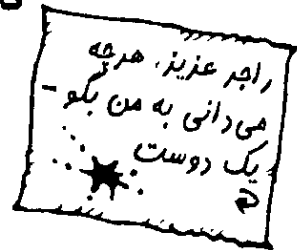 راجر عزیز، هرچه
می‌دانی به من بگو -
یک دوست